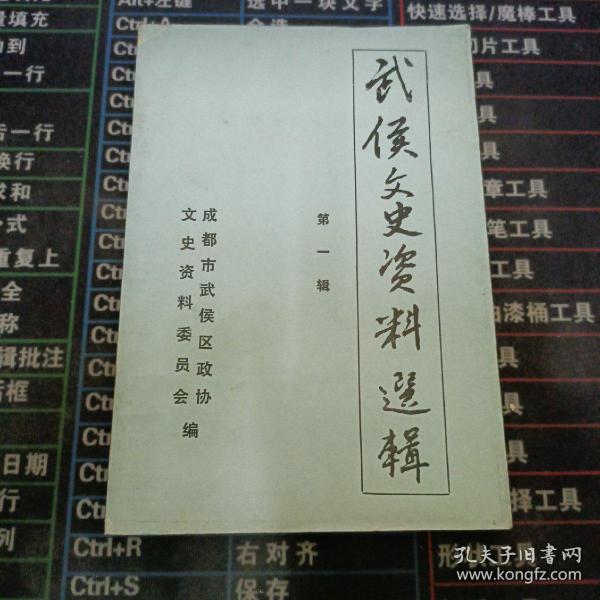 武侯文史资料選輯
第一辑
成都市武侯区政协
文史资料委员会编
Alt+左键
选中一块文字
快速选择/魔棒工具
量填充
Ctrl+A
全选
到
片工具
一行
后一行
换行
求和
章工具
式
笔工具
重复上
工具
全
油漆桶工具
称
辑批注
工具
框
工具
日期
行
择工具
列
Ctrl+R
右对齐
形状工具
Ctrl+S
保存
孔夫子旧书网
www.kongfz.com